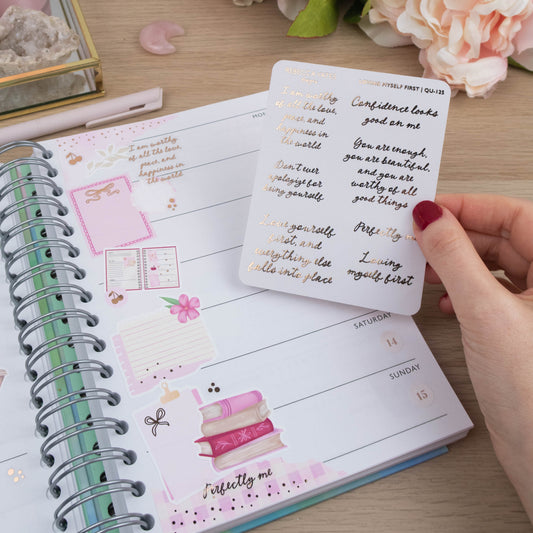 MYSELF FIRST | QU-125
I am worthy
of all the love,
peace, and
happiness in
the world
Don't ever
apologize for
being yourself
Love yourself
first, and
everything else
falls into place
Confidence looks
good on me
You are enough,
you are beautiful,
and you are
worthy of all
good things
Perfectly me
Loving
myself first
I am worthy
of all the love,
peace, and
happiness in
the world
SATURDAY
14
SUNDAY
15
Perfectly me